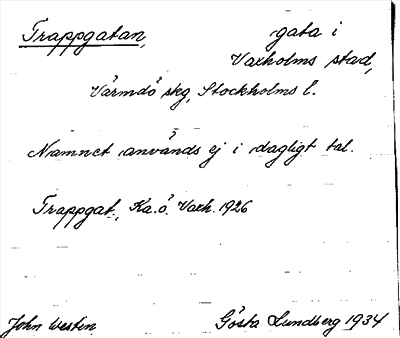 Trappgatan, gata i
Vaxholms stad,
Värmdö skg, Stockholms l.
Namnet används ej i dagligt tal.
Trappgat., Ka. ö. Vaxh. 1926
John Westen Gösta Lundberg 1934